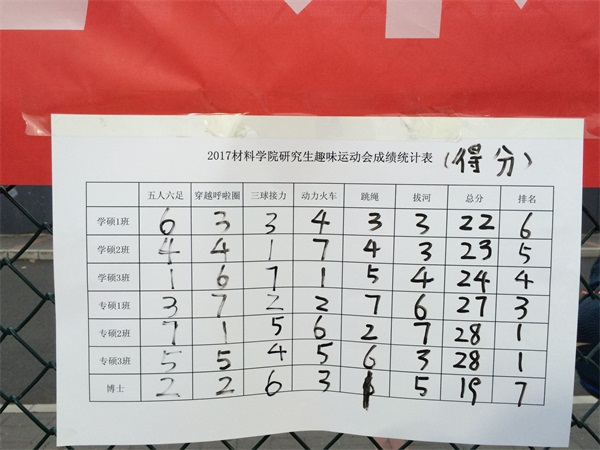 2017材料学院研究生趣味运动会成绩统计表（得分）
五人六足 穿越呼啦圈 三球接力 动力火车 跳绳 拔河 总分 排名
学硕1班 6 3 3 4 3 3 22 6
学硕2班 4 4 1 7 4 3 23 5
学硕3班 1 6 7 1 5 4 24 4
专硕1班 3 7 2 2 7 6 27 3
专硕2班 7 1 5 6 2 7 28 1
专硕3班 5 5 4 5 6 3 28 1
博士 2 2 6 3 1 5 19 7